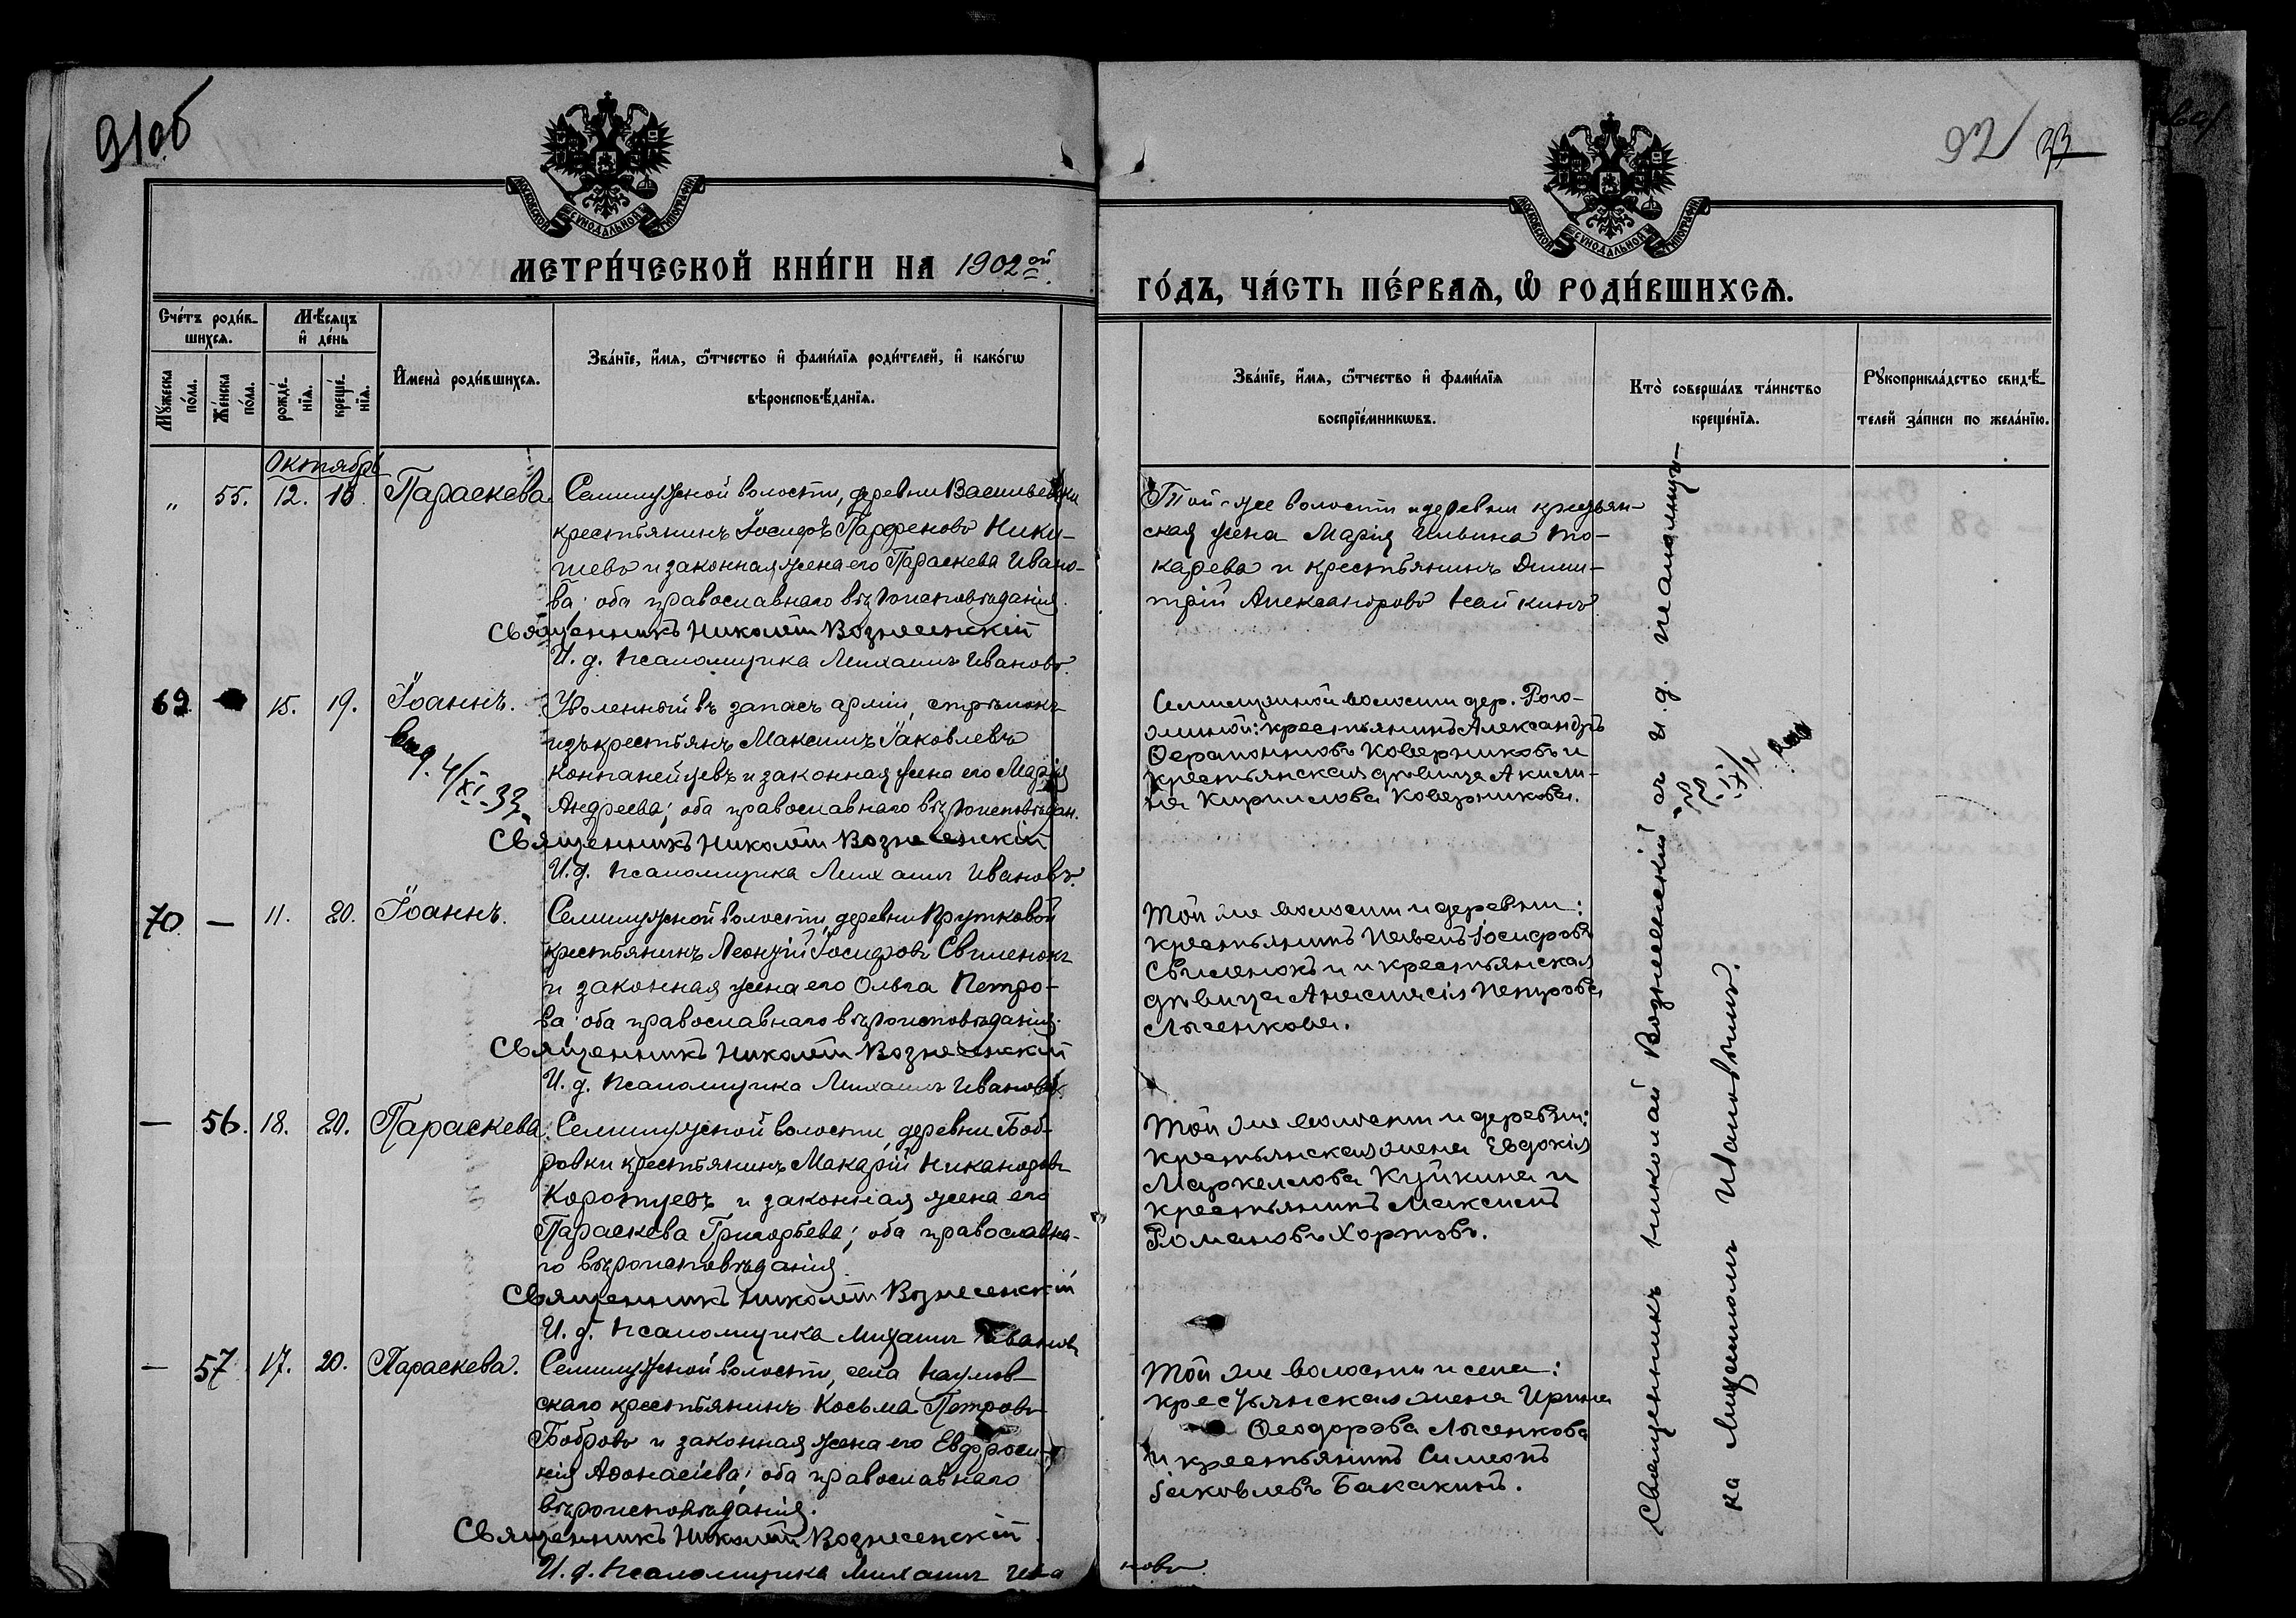 91об
92
МОСКОВСКОЙ СУНОДАЛЬНОЙ ТИПОГРАФІИ
МОСКОВСКОЙ СУНОДАЛЬНОЙ ТИПОГРАФІИ
МЕТРИ́ЧЕСКОЙ КНИ́ГИ НА 1902ой
ГО́ДЪ, ЧА́СТЬ ПЕ́РВАѦ, Ѡ РОДИ́ВШИХСѦ.
Сче́тъ роди́в-
шихсѧ.
Мѣ́сѧцъ
и де́нь
Мꙋ́жеска
по́ла.
Же́нска
по́ла.
рожде́-
нїѧ.
креще́-
нїѧ.
Имена̀ роди́вшихсѧ.
Зва́нїе, и́мѧ, ѻ́тчество и фами́лїѧ роди́телей, и како́гѡ
вѣроисповѣ́данїѧ.
Зва́нїе, и́мѧ, ѻ́тчество и фами́лїѧ
воспрїе́мникѡвъ.
Кто̀ соверша́лъ та́инство
креще́нїѧ.
Рꙋкоприкла́дство свидѣ́-
телей за́писи по жела́нїю.
Октябрь
" 55. 12. 13. Параскева. Семилужной волости, деревни Васильевки
крестьянинъ Іосифъ Парфеновъ Ники-
шевъ и законная жена его Параскева Ивано-
ва; оба православнаго вѣроисповѣданія.
Священникъ Николай Вознесенскій
И. д. псаломщика Михаилъ Ивановъ.
Той-же волости и деревни крестьян-
ская жена Марія Ильина То-
карева и крестьянинъ Дими-
трій Александровъ
69 15. 19. Іоаннъ. Уволенный въ запасъ арміи, стрѣлокъ
изъ крестьянъ Максимъ Іаковлевъ
и законная жена его Марія
Андреева; оба православнаго вѣроисповѣдан.
Священникъ Николай Вознесенскій
И. д. псаломщика Михаилъ Ивановъ.
выд. 4/XI-33.
Семилужной волости дер.
крестьянинъ Александръ
Ѳерапонтовъ Коверниковъ и
крестьянская дѣвица Акили-
на Кириллова Коверникова.
70 — 11. 20. Іоаннъ. Семилужной волости, деревни Прутковой
крестьянинъ Леонтій Іосифовъ
и законная жена его Ольга Петро-
ва; оба православнаго вѣроисповѣданія.
Священникъ Николай Вознесенскій
И. д. псаломщика Михаилъ Ивановъ.
Той же волости и деревни:
крестьянинъ Павелъ Іосифовъ
и крестьянская
дѣвица Анастасія Петрова
Лысенкова.
— 56. 18. 20. Параскева. Семилужной волости, деревни Боб-
ровки крестьянинъ Макарій Никаноровъ
и законная жена его
Параскева Григорьева; оба православна-
го вѣроисповѣданія.
Священникъ Николай Вознесенскій
И. д. псаломщика Михаилъ Ивановъ
Той же волости и деревни:
крестьянская жена Евдокія
Маркеллова Куйкина и
крестьянинъ Максимъ
Романовъ
— 57 17. 20. Параскева. Семилужной волости, села Наумов-
скаго крестьянинъ Косьма Петровъ
Бобровъ и законная жена его Евфроси-
нія Аѳонасіева; оба православнаго
вѣроисповѣданія.
Священникъ Николай Вознесенскій
И. д. псаломщика Михаилъ Ива
новъ
Той же волости и села:
крестьянская жена Ирина
Ѳеодорова Лысенкова
и крестьянинъ Симеонъ
Іаковлевъ Бакакинъ.
Священникъ Николай Вознесенскій съ и. д. псаломщи-
ка Михаиломъ Ивановымъ.